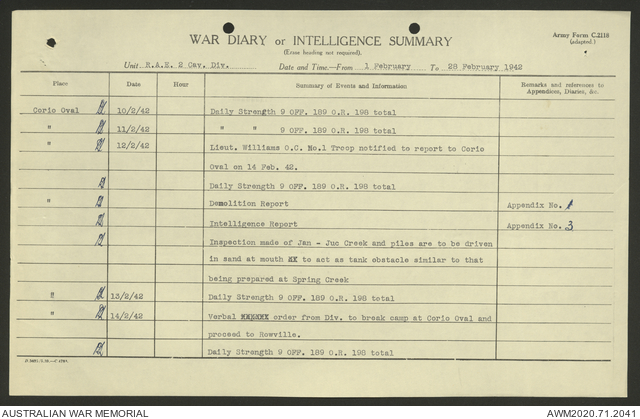 Army Form C.2118
(adapted.)
WAR DIARY or INTELLIGENCE SUMMARY
(Erase heading not required).
Unit R.A.E. 2 Cav. Div. Date and Time.—From 1 February To 28 February 1942
Place Date Hour Summary of Events and Information Remarks and references to Appendices, Diaries, &c.
Corio Oval 10/2/42 Daily Strength 9 OFF. 189 O.R. 198 total
" 11/2/42 " " 9 OFF. 189 O.R. 198 total
" 12/2/42 Lieut. Williams O.C. No.1 Troop notified to report to Corio
Oval on 14 Feb. 42.
Daily Strength 9 OFF. 189 O.R. 198 total
" Demolition Report Appendix No.
Intelligence Report Appendix No. 3
Inspection made of Jan - Juc Creek and piles are to be driven
in sand at mouth to act as tank obstacle similar to that
being prepared at Spring Creek
" 13/2/42 Daily Strength 9 OFF. 189 O.R. 198 total
" 14/2/42 Verbal order from Div. to break camp at Corio Oval and
proceed to Rowville.
Daily Strength 9 OFF. 189 O.R. 198 total
AUSTRALIAN WAR MEMORIAL AWM2020.71.2041